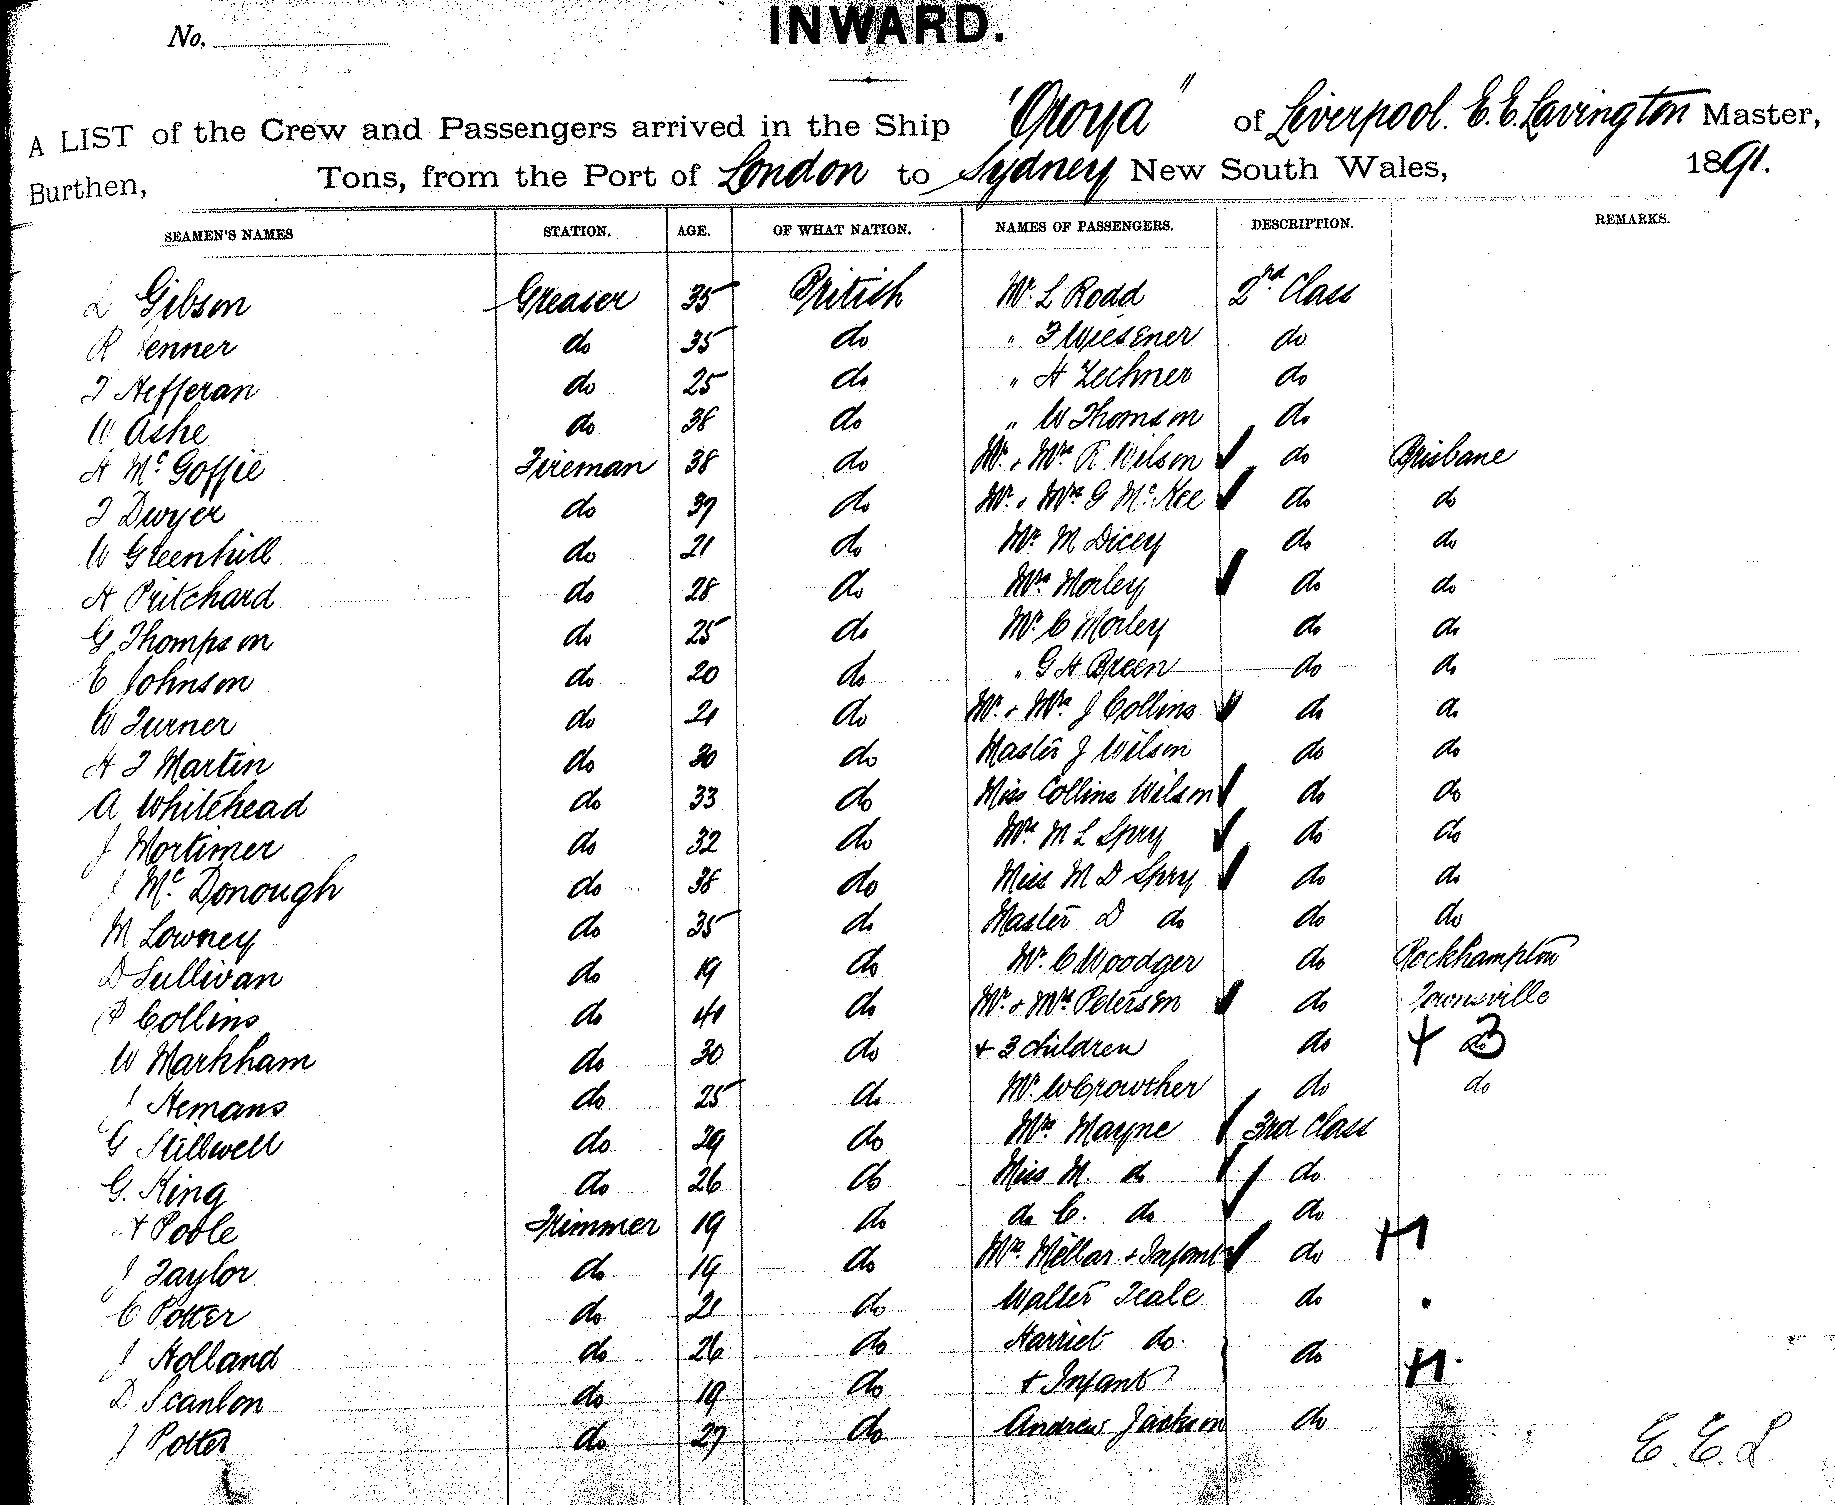 No.
INWARD.
A LIST of the Crew and Passengers arrived in the Ship "Oroya" of Liverpool. E. E. Lavington Master,
Burthen, Tons, from the Port of London to Sydney New South Wales, 1891.
SEAMEN'S NAMES STATION. AGE. OF WHAT NATION. NAMES OF PASSENGERS. DESCRIPTION. REMARKS.
L Gibson Greaser 35 British Mr. L Rodd 2nd Class
R Fenner do 35 do " F Wiesener do
T Hefferan do 25 do " H Zechner do
W Ashe do 38 do " W Thomson do
H McGoffie Fireman 38 do Mr. + Mrs R Wilson do Brisbane
T Dwyer do 39 do Mr. + Mrs G McKee do do
W Greenhill do 21 do Mr M Dicey do do
H Pritchard do 28 do Mrs Morley do do
G Thompson do 25 do Mr. C Morley do do
E Johnson do 20 do " G H Breen do do
W Turner do 21 do Mr. + Mrs J Collins do do
H T Martin do 30 do Master J Wilson do do
A Whitehead do 33 do Miss Collins Wilson do do
J Mortimer do 32 do Mrs M L Spry do do
J McDonough do 38 do Miss M D Spry do do
M Lowney do 35 do Master D do do do
D Sullivan do 19 do Mr. C Woodger do Rockhampton
P Collins do 41 do Mr. + Mrs Peterson do Townsville
W Markham do 30 do + 3 children do + 3 do
J Hemans do 25 do Mr. W Crowther do do
G Stillwell do 29 do Mrs Mayne 3rd Class
G. King do 26 do Miss M. do do
H Poole Trimmer 19 do do C. do do
J Taylor do 19 do Mrs. Millar + Infant do +1
C Potter do 21 do Walter Teale do
J Holland do 26 do Harriet do do +1
D Scanlon do 19 do + Infant
J Potter do 27 do Andrew Jackson do
E. E. L